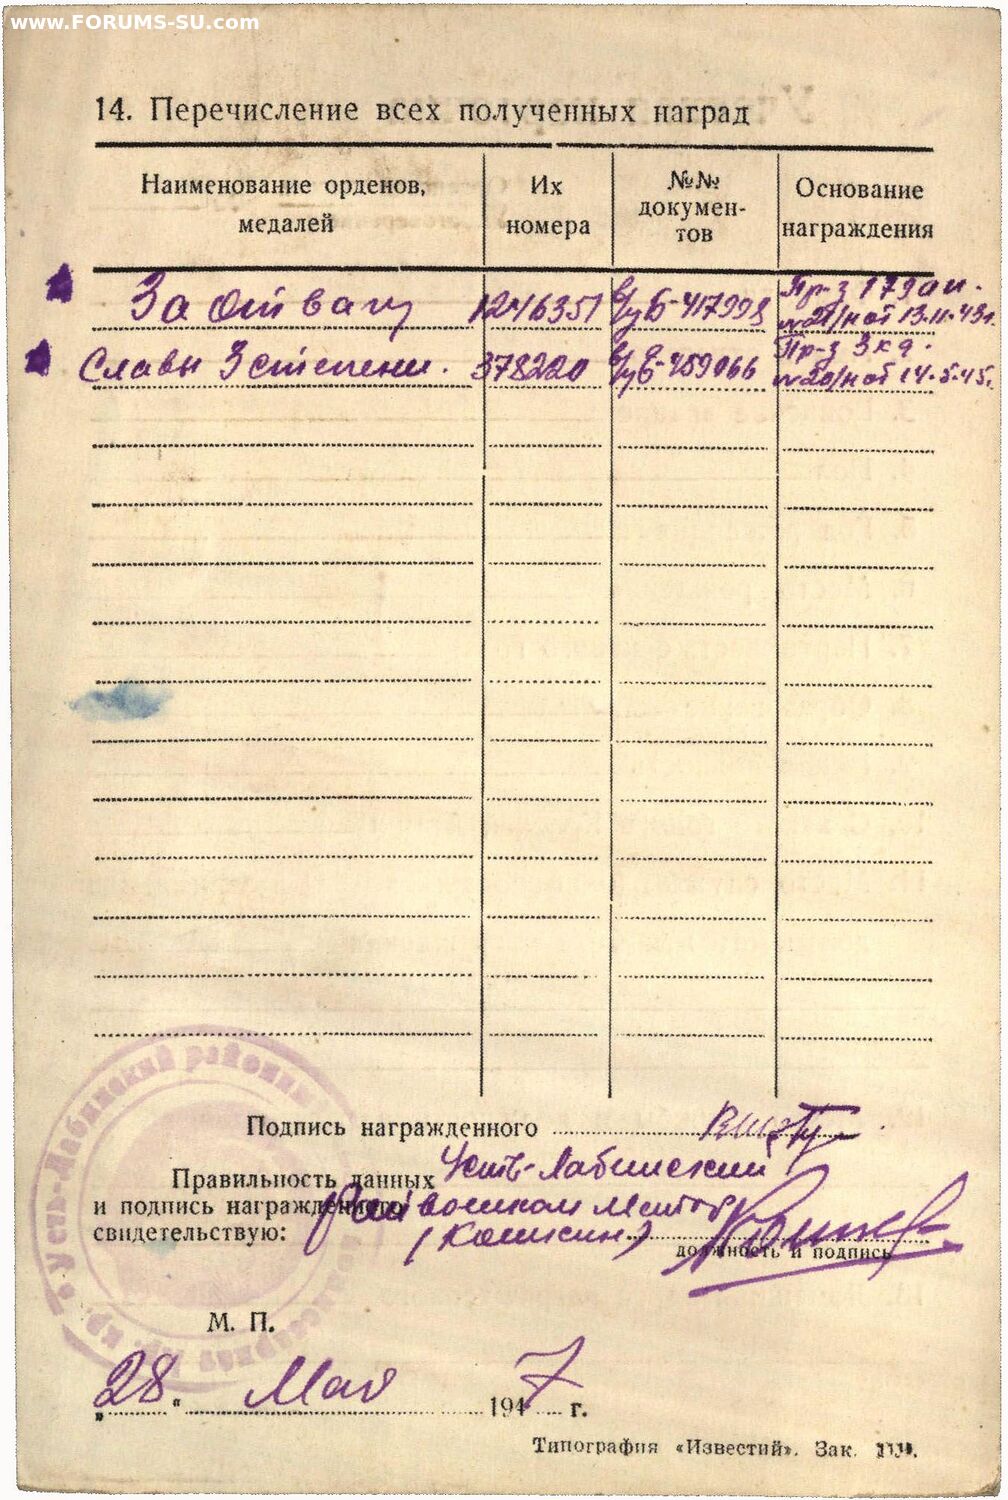 www.FORUMS-SU.com
14. Перечисление всех полученных наград
Наименование орденов, медалей
Их номера
№№ документов
Основание награждения
За отвагу 1246351 Б-417993 Пр-з 179 от 13.11.43г.
Славы 3 степени. 378220 459066 Пр-з 3 кд. №20/н от 14.5.45г.
Подпись награжденного
Правильность данных Усть-Лабинский
и подпись награжденного Рай военком Майор
свидетельствую: (Кошкин)
должность и подпись
Усть-Лабинский районн
М. П.
„28“ Мая 1947 г.
Типография «Известий». Зак.